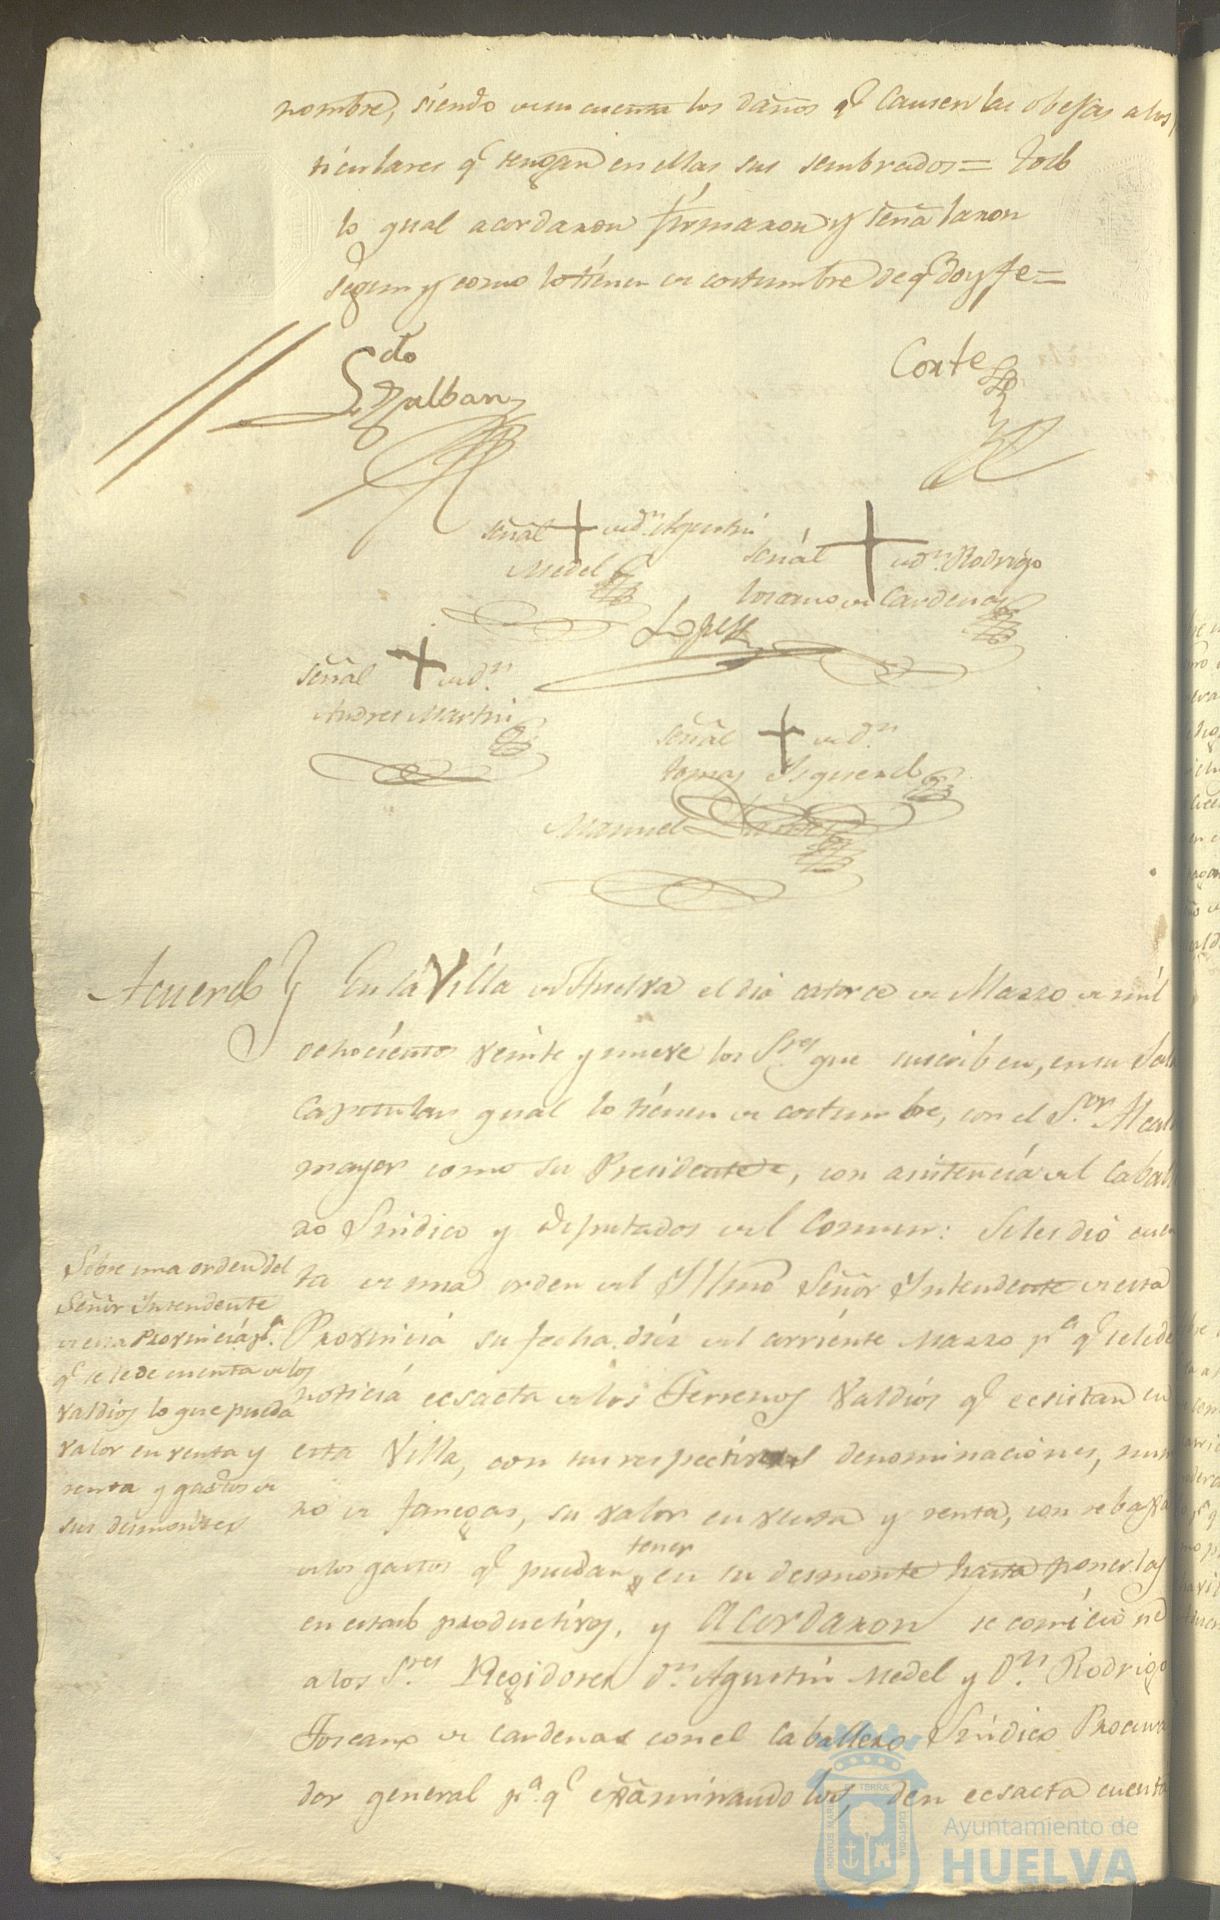 nombre, siendo de su cuenta los daños q.e causen las obejas a los
ticulares q.e tengan en ellas sus sembrados = todo
lo gual acordaron firmaron y señalaron
segun y como lo tienen de costumbre de q.e doy fe =
S.do Galban
Corte
señal de d.n Agustin
Medel
señal de d.n Rodrigo
toscano de Cardenas
Lopez
señal de d.n
Andres Martin
señal de d.n
tomas
Manuel
Acuerdo
En la Villa de Huelva el dia catorce de Marzo de mil
ochocientos veinte y nueve los S.res que suscriben, en su Sala
Capitular gual lo tienen de costumbre, con el S.or Alcal
mayor como su Presidente, con asistencia del Caball
ro Sindico y Diputados del Comun: Seles dió cuen
ta de una orden del Yllmo Señor Yntendente de esta
Provincia su fecha diez del corriente Marzo p.a q.e sele de
noticia ecsacta de los Terrenos Valdios q.e ecsistan en
esta Villa, con sus respectivas denominaciones, nume
ro de fanegas, su valor en venta y renta, con rebaxa
de los gastos q.e puedan tener en su desmonte hasta ponerlas
en estado productivos, y Acordaron se comicione
a los S.res Regidores d.n Agustin Medel y D.n Rodrigo
Toscano de Cardenas con el Caballero Sindico Procura
dor general p.a q.e examinandolos, den ecsacta cuenta
Sobre una orden del
Señor Yntendente
de esta Provincia p.a
q.e se le de cuenta de los
valdios lo que pueda
valor en venta y
renta y gastos de
sus desmontes
Ayuntamiento de
HUELVA